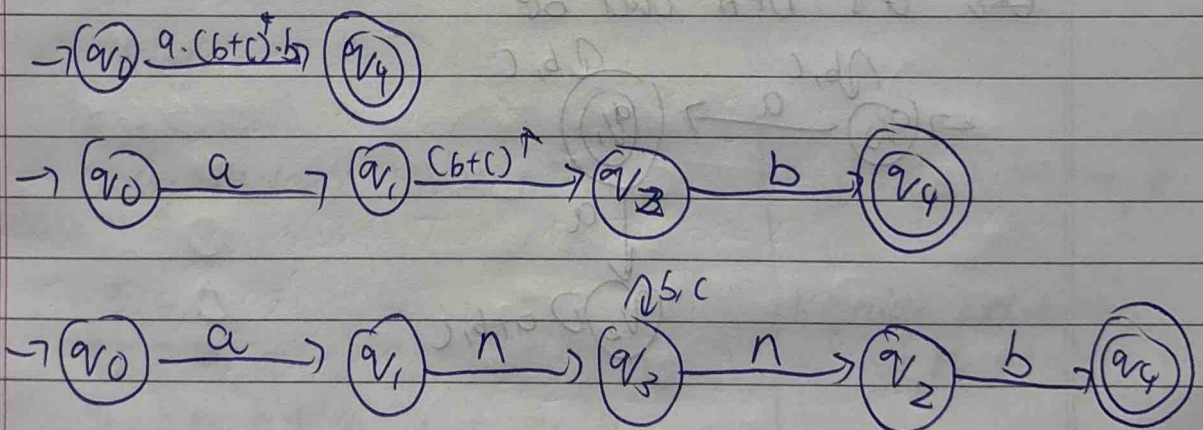 → q0 a.(b+c)*.b → q4
→ q0 a → q1 (b+c)* → q2 b → q4
b,c
→ q0 a → q1 n → q3 n → q2 b → q4